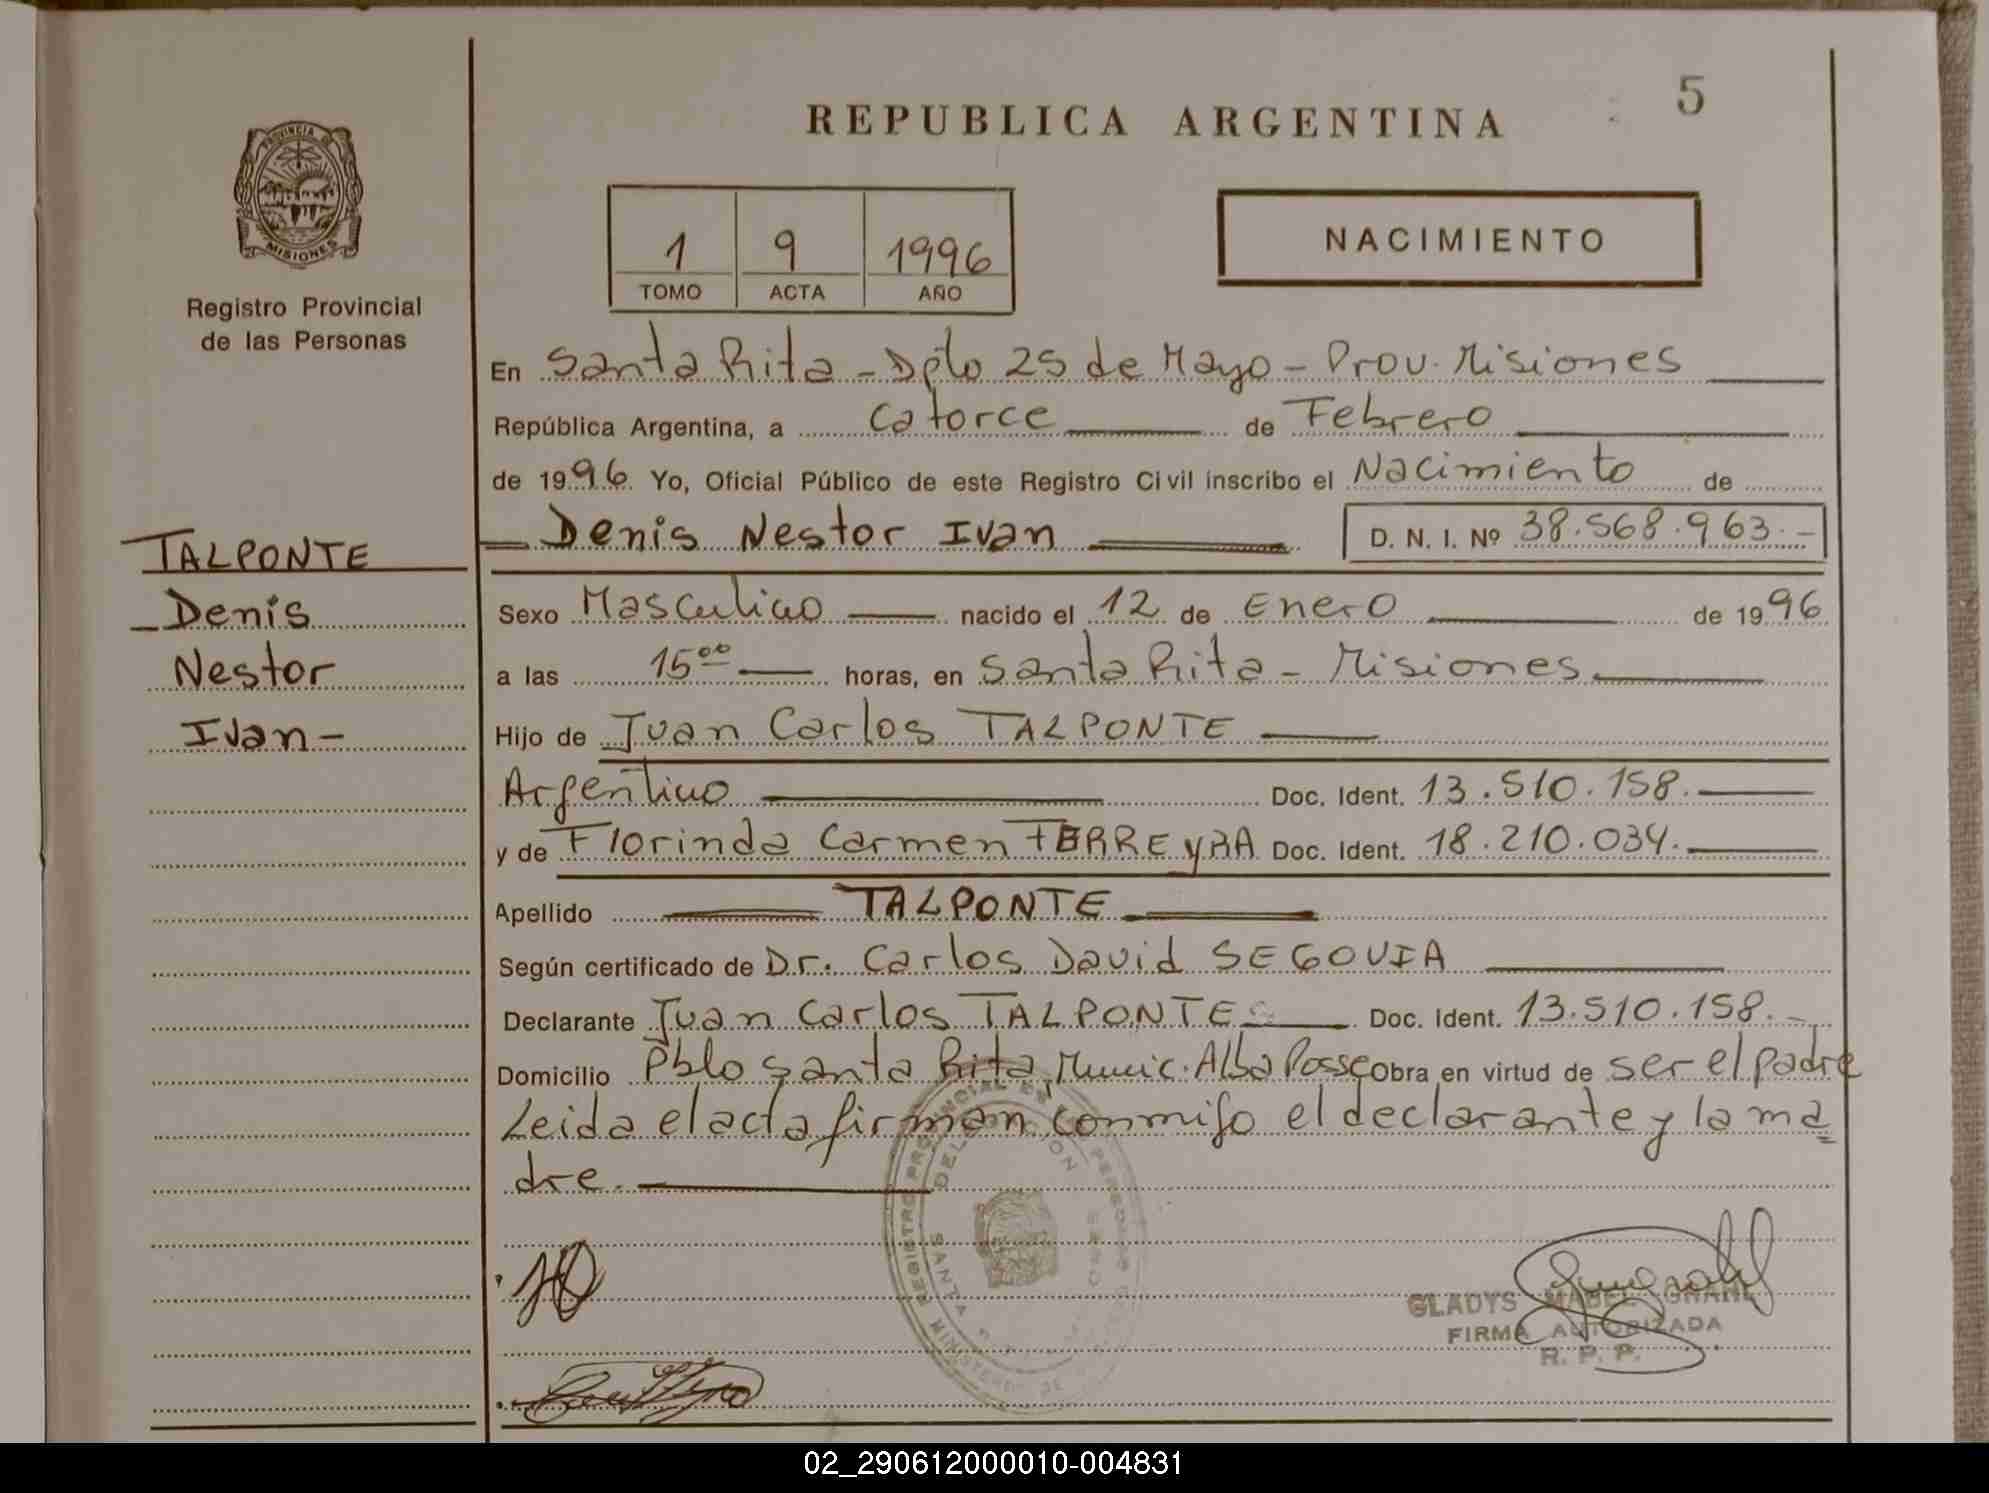 5
REPUBLICA ARGENTINA
PROVINCIA DE
MISIONES
Registro Provincial
de las Personas
1 9 1996
TOMO ACTA AÑO
NACIMIENTO
En Santa Rita - Dpto 25 de Mayo - Prov. Misiones
República Argentina, a catorce de Febrero
de 1996. Yo, Oficial Público de este Registro Civil inscribo el Nacimiento de
Denis Nestor Ivan D. N. I. Nº 38.568.963.-
TALPONTE
Denis
Nestor
Ivan -
Sexo Masculino nacido el 12 de Enero de 1996
a las 15°° horas, en Santa Rita - Misiones
Hijo de Juan Carlos TALPONTE
Argentino Doc. Ident. 13.510.158.
y de Florinda Carmen FERREyRA Doc. Ident. 18.210.034.
Apellido TALPONTE
Según certificado de Dr. Carlos David SEGOVIA
Declarante Juan Carlos TALPONTE Doc. Ident. 13.510.158.-
Domicilio Pblo Santa Rita, Munic. Alba Posse Obra en virtud de ser el padre
Leida el acta firman conmigo el declarante y la ma=
dre.
REGISTRO PROVINCIAL DE LAS PERSONAS
DELEGACION
SANTA
MINISTERIO DE
GLADYS MABEL GRAHL
FIRMA AUTORIZADA
R. P. P.
02_290612000010-004831